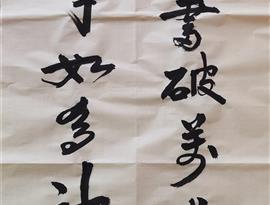 書破萬
如有神